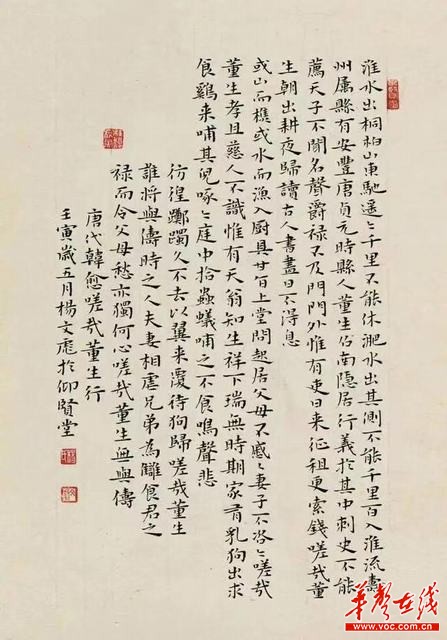 淮水出桐柏山東馳遥〻千里不能休淝水出其側不能千里百入淮流壽
州屬縣有安豐唐貞元時縣人董生召南隐居行義於其中刺史不能
薦天子不聞名聲爵禄不及門門外惟有吏日来征租更索錢嗟哉董
生朝出耕夜歸讀古人書盡日不得息
或山而樵或水而漁入厨具甘旨上堂問起居父母不慼〻妻子不咨〻嗟哉
董生孝且慈人不識惟有天翁知生祥下瑞無時期家有乳狗出求
食鷄来哺其兒啄〻庭中拾蟲蟻哺之不食鳴聲悲
彷徨躑躅久不去以翼来覆待狗歸嗟哉董生
誰將與儔時之人夫妻相虐兄弟為讎食君之
禄而令父母愁亦獨何心嗟哉董生無與儔
唐代韓愈嗟哉董生行
壬寅歲五月楊文彪於仰賢堂
華聲在线
www.voc.com.cn